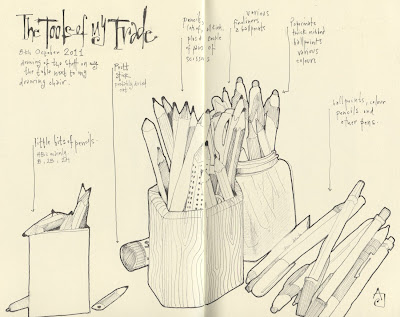 The Tools of My Trade
8th October 2011
drawing of the stuff on my
the table next to my
drawing chair.
little bits of pencils
HB's mainly
B, 2B, 2H
Pritt
stick
probably dried
out
pencils,
lots of, all kinds,
plus a couple
of pairs of
scissors
various
fineliners,
& ballpoints
Papermate
thick nibbed
ballpoints
various
colours
ballpoints, colour
pencils and
other pens.